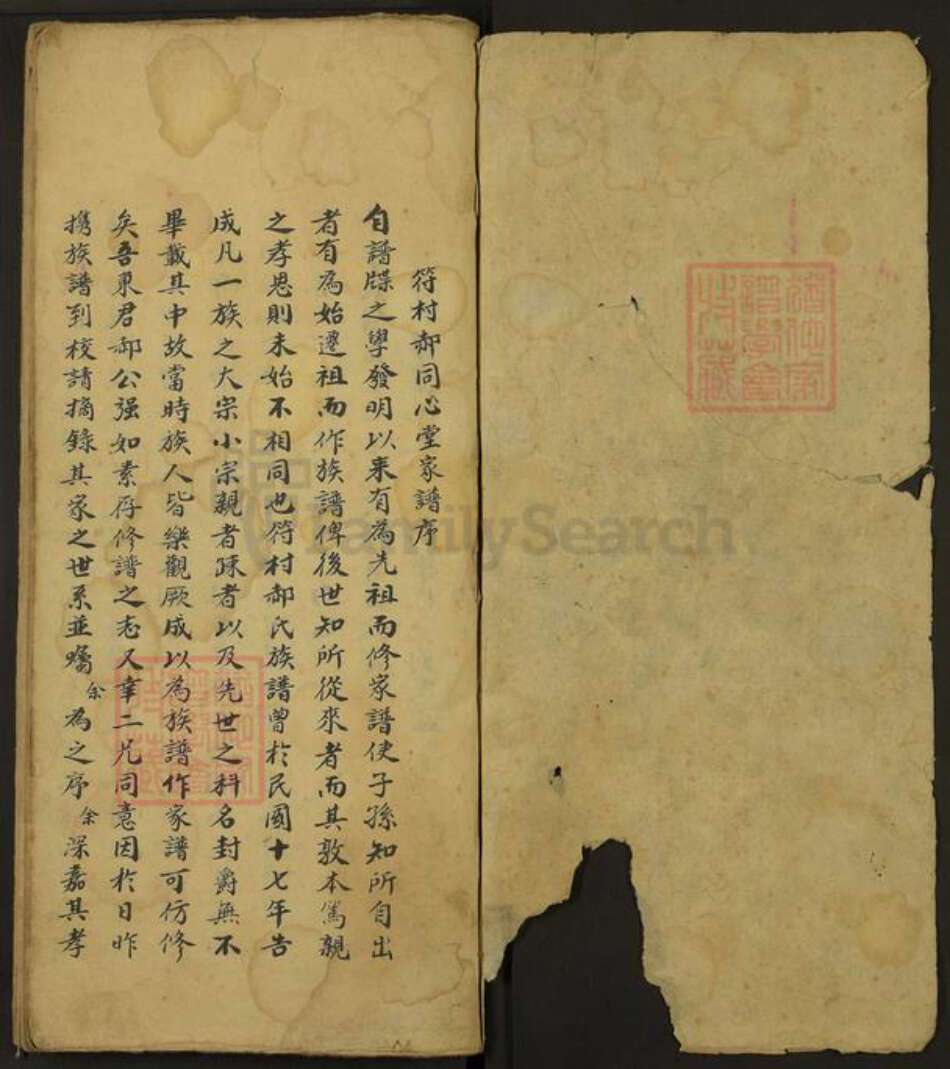 符村郝同心堂家譜序
自譜牒之學發明以來有為先祖而修家譜使子孫知所自出
者有為始遷祖而作族譜俾後世知所從來者而其敦本篤親
之孝思則未始不相同也符村郝氏族譜曾於民國十七年告
成凡一族之大宗小宗親者疎者以及先世之科名封爵無不
畢載其中故當時族人皆樂觀厥成以為族譜作家譜可仿修
矣吾東君郝公强如素存修譜之志又幸二凡同意因於日昨
携族譜到校請摘錄其家之世系並囑余為之序余深嘉其孝
FamilySearch